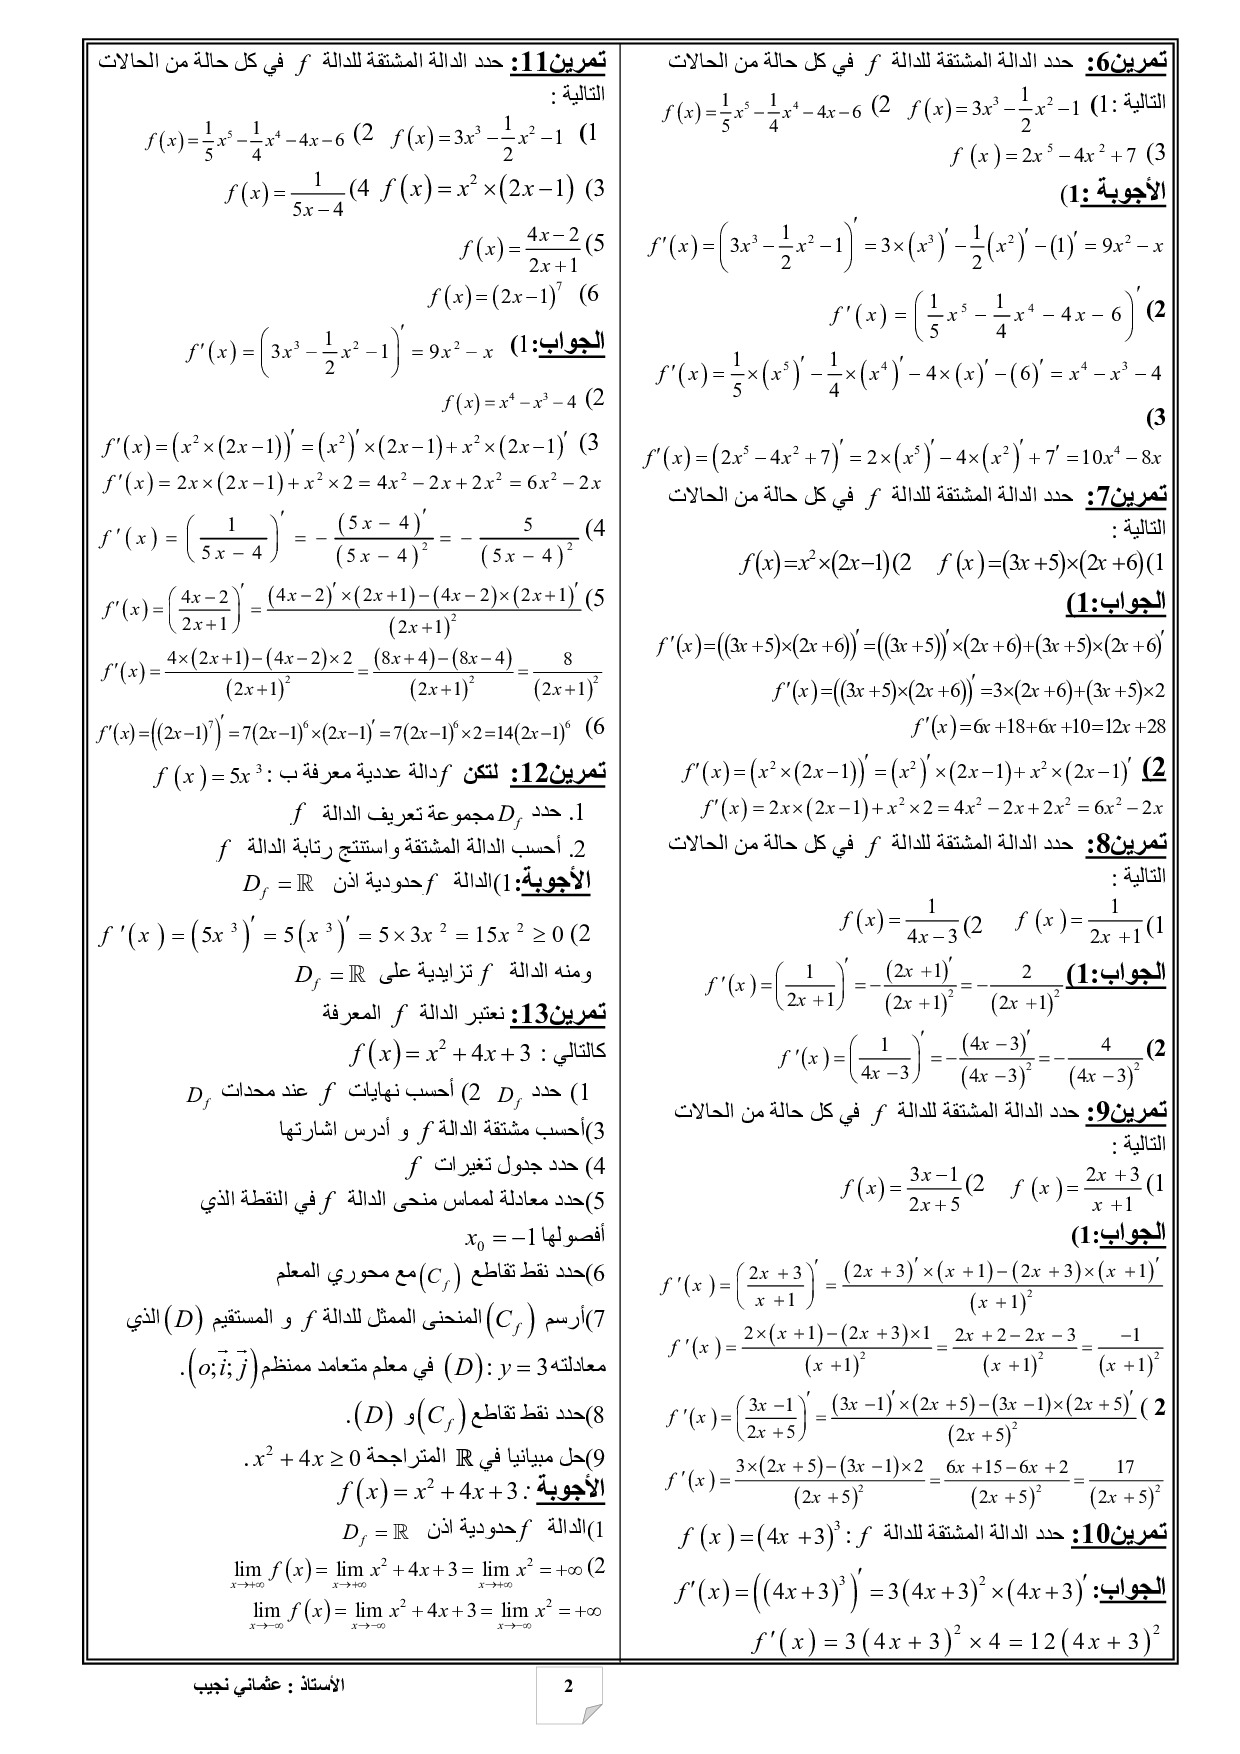 تمرين6: حدد الدالة المشتقة للدالة f في كل حالة من الحالات
التالية :1) f(x)=3x³−(1/2)x²−1 2) f(x)=(1/5)x⁵−(1/4)x⁴−4x−6
3) f(x)=2x⁵−4x²+7
الأجوبة :1)
f′(x)=(3x³−(1/2)x²−1)′=3×(x³)′−(1/2)(x²)′−(1)′=9x²−x
2) f′(x)=((1/5)x⁵−(1/4)x⁴−4x−6)′
f′(x)=(1/5)×(x⁵)′−(1/4)×(x⁴)′−4×(x)′−(6)′=x⁴−x³−4
3)
f′(x)=(2x⁵−4x²+7)′=2×(x⁵)′−4×(x²)′+7′=10x⁴−8x
تمرين7: حدد الدالة المشتقة للدالة f في كل حالة من الحالات
التالية :
1) f(x)=(3x+5)×(2x+6) 2) f(x)=x²×(2x−1)
الجواب:1)
f′(x)=((3x+5)×(2x+6))′=((3x+5))′×(2x+6)+(3x+5)×(2x+6)′
f′(x)=((3x+5)×(2x+6))′=3×(2x+6)+(3x+5)×2
f′(x)=6x+18+6x+10=12x+28
2) f′(x)=(x²×(2x−1))′=(x²)′×(2x−1)+x²×(2x−1)′
f′(x)=2x×(2x−1)+x²×2=4x²−2x+2x²=6x²−2x
تمرين8: حدد الدالة المشتقة للدالة f في كل حالة من الحالات
التالية :
1) f(x)=1/(2x+1) 2) f(x)=1/(4x−3)
الجواب:1) f′(x)=(1/(2x+1))′=−(2x+1)′/(2x+1)²=−2/(2x+1)²
2) f′(x)=(1/(4x−3))′=−(4x−3)′/(4x−3)²=−4/(4x−3)²
تمرين9: حدد الدالة المشتقة للدالة f في كل حالة من الحالات
التالية :
1) f(x)=(2x+3)/(x+1) 2) f(x)=(3x−1)/(2x+5)
الجواب:1)
f′(x)=((2x+3)/(x+1))′=((2x+3)′×(x+1)−(2x+3)×(x+1)′)/(x+1)²
f′(x)=(2×(x+1)−(2x+3)×1)/(x+1)²=(2x+2−2x−3)/(x+1)²=−1/(x+1)²
2) f′(x)=((3x−1)/(2x+5))′=((3x−1)′×(2x+5)−(3x−1)×(2x+5)′)/(2x+5)²
f′(x)=(3×(2x+5)−(3x−1)×2)/(2x+5)²=(6x+15−6x+2)/(2x+5)²=17/(2x+5)²
تمرين10: حدد الدالة المشتقة للدالة f : f(x)=(4x+3)³
الجواب: f′(x)=((4x+3)³)′=3(4x+3)²×(4x+3)′
f′(x)=3(4x+3)²×4=12(4x+3)²
تمرين11: حدد الدالة المشتقة للدالة f في كل حالة من الحالات
التالية :
1) f(x)=3x³−(1/2)x²−1 2) f(x)=(1/5)x⁵−(1/4)x⁴−4x−6
3) f(x)=x²×(2x−1) 4) f(x)=1/(5x−4)
5) f(x)=(4x−2)/(2x+1)
6) f(x)=(2x−1)⁷
الجواب:1) f′(x)=(3x³−(1/2)x²−1)′=9x²−x
2) f(x)=x⁴−x³−4
3) f′(x)=(x²×(2x−1))′=(x²)′×(2x−1)+x²×(2x−1)′
f′(x)=2x×(2x−1)+x²×2=4x²−2x+2x²=6x²−2x
4) f′(x)=(1/(5x−4))′=−(5x−4)′/(5x−4)²=−5/(5x−4)²
5) f′(x)=((4x−2)/(2x+1))′=((4x−2)′×(2x+1)−(4x−2)×(2x+1)′)/(2x+1)²
f′(x)=(4×(2x+1)−(4x−2)×2)/(2x+1)²=((8x+4)−(8x−4))/(2x+1)²=8/(2x+1)²
6) f′(x)=((2x−1)⁷)′=7(2x−1)⁶×(2x−1)′=7(2x−1)⁶×2=14(2x−1)⁶
تمرين12: لتكن f دالة عددية معرفة ب : f(x)=5x³
1. حدد D_f مجموعة تعريف الدالة f
2. أحسب الدالة المشتقة واستنتج رتابة الدالة f
الأجوبة:1)الدالة f حدودية اذن D_f=ℝ
2) f′(x)=(5x³)′=5(x³)′=5×3x²=15x²≥0
ومنه الدالة f تزايدية على D_f=ℝ
تمرين13: نعتبر الدالة f المعرفة
كالتالي : f(x)=x²+4x+3
1) حدد D_f 2) أحسب نهايات f عند محدات D_f
3)أحسب مشتقة الدالة f و أدرس اشارتها
4) حدد جدول تغيرات f
5)حدد معادلة لمماس منحى الدالة f في النقطة الذي
أفصولها x₀=−1
6)حدد نقط تقاطع (C_f) مع محوري المعلم
7)أرسم (C_f) المنحنى الممثل للدالة f و المستقيم (D) الذي
معادلته (D): y=3 في معلم متعامد ممنظم (o;i⃗;j⃗).
8)حدد نقط تقاطع (C_f) و (D).
9)حل مبيانيا في ℝ المتراجحة x²+4x≥0.
الأجوبة : f(x)=x²+4x+3
1)الدالة f حدودية اذن D_f=ℝ
2) lim x→+∞ f(x)=lim x→+∞ x²+4x+3=lim x→+∞ x²=+∞
lim x→−∞ f(x)=lim x→−∞ x²+4x+3=lim x→−∞ x²=+∞
الأستاذ : عثماني نجيب
2